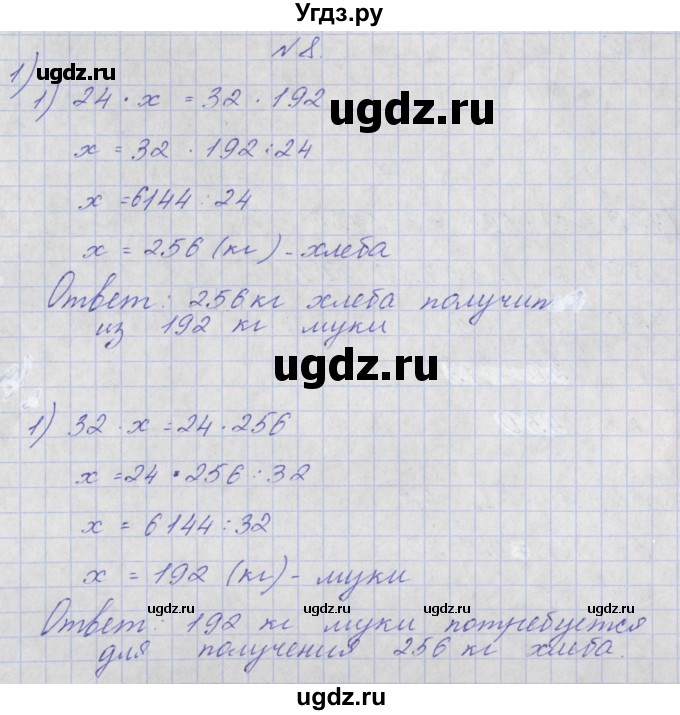 Угдз.ру
№8.
1)
1) 24 · x = 32 · 192
x = 32 · 192 : 24
x = 6144 : 24
x = 256 (кг) - хлеба
Ответ: 256 кг хлеба получит
из 192 кг муки
1) 32 · x = 24 · 256
x = 24 · 256 : 32
x = 6144 : 32
x = 192 (кг) - муки
Ответ: 192 кг муки потребуется
для получения 256 кг хлеба.
ugdz.ru
ugdz.ru
ugdz.ru
ugdz.ru
ugdz.ru
ugdz.ru
ugdz.ru
ugdz.ru
ugdz.ru
ugdz.ru